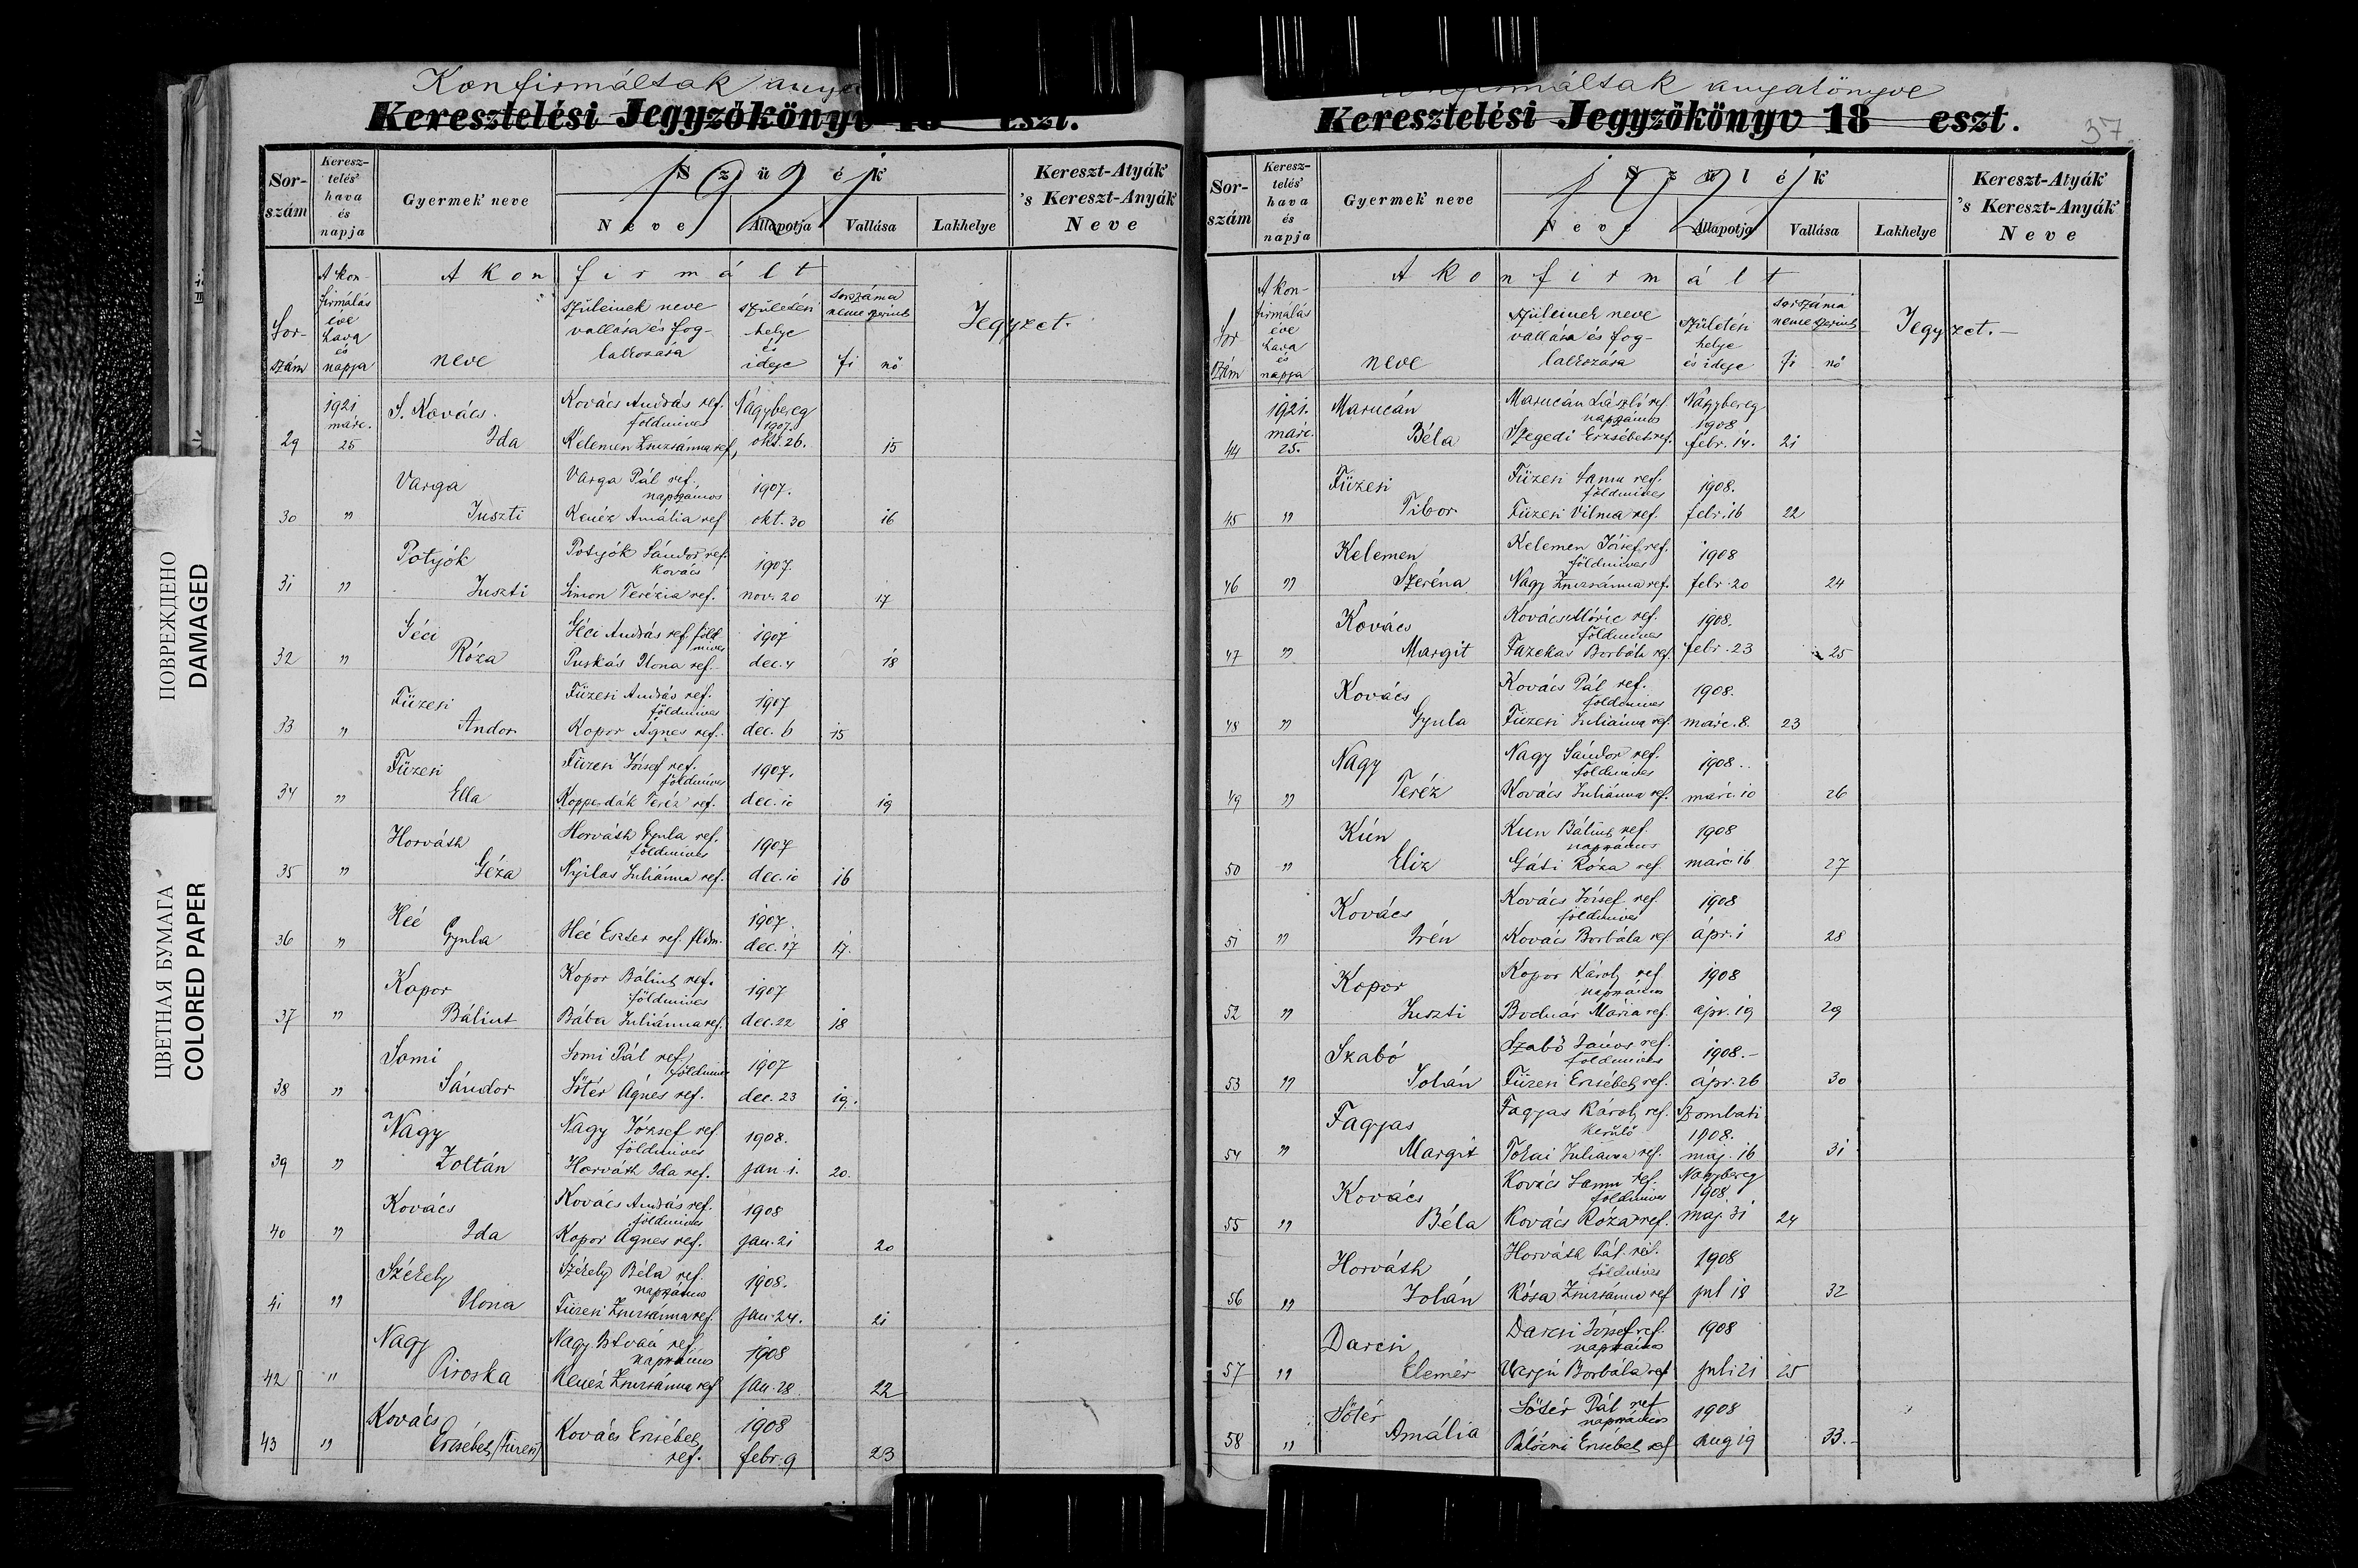 ПОВРЕЖДЕНО
DAMAGED
ЦВЕТНАЯ БУМАГА
COLORED PAPER
Konfirmáltak
Keresztelési Jegyzökönyv 18 eszt.
1921
Sor-szám
Keresz-telés' hava és napja
Gyermek' neve
Szülék
Neve
Állapotja
Vallása
Lakhelye
Kereszt-Atyák' 's Kereszt-Anyák' Neve
A konfirmált
Sor-szám
A kon-firmálás éve hava és napja
neve
szüleinek neve vallása és fog-lalkozása
születési helye és ideje
sorszáma neme szerint
fi nő
Jegyzet.
1921 márc. 25
S. Kovács Kovács András ref. Nagybereg
földmives 1907.
29 Ida Kelemen Zsuzsánna ref. okt. 26. 15
Varga Varga Pál ref. 1907.
napszámos
30 " Juszti Kenéz Amália ref okt. 30 16
Potyók Potyók Sándor ref. 1907.
kovács
31 " Juszti Simon Terézia ref. nov. 20 17
Géci Géci András ref. föld 1907
mives
32 " Róza Puskás Ilona ref. dec. 4 18
Füzesi Füzesi András ref. 1907
földmives
33 " Andor Kopor Ágnes ref. dec. 6 15
Füzesi Füzesi József ref. 1907.
földmives
34 " Ella Koppedák Teréz ref. dec. 10 19
Horváth Horváth Gyula ref. 1907
földmives
35 " Géza Nyilas Juliánna ref. dec. 10 16
Héé 1907.
36 " Gyula Héé Eszter ref. fldm. dec. 17 17.
Kopor Kopor Bálint ref. 1907
földmives
37 " Bálint Bába Juliánna ref. dec. 22 18
Somi Somi Pál ref. 1907
földmives
38 " Sándor Sőtér Ágnes ref. dec. 23 19.
Nagy Nagy József ref. 1908.
földmives
39 " Zoltán Horváth Ida ref. jan. 1. 20.
Kovács Kovács András ref. 1908
földmives
40 " Ida Kopor Ágnes ref. jan. 21 20
Székely Székely Béla ref. 1908.
napszámos
41 " Ilona Füzesi Zsuzsánna ref. jan. 24. 21
Nagy Nagy István ref. 1908
napszámos
42 " Piroska Kenéz Zsuzsánna ref jan. 28. 22
Kovács Kovács Erzsébet 1908
43 " Erzsébet (Füzesi) ref. febr. 9 23
Konfirmáltak anyakönyve
Keresztelési Jegyzökönyv 18 eszt.
37
1921
Sor-szám
Keresz-telés' hava és napja
Gyermek' neve
Szülék
Neve
Állapotja
Vallása
Lakhelye
Kereszt-Atyák' 's Kereszt-Anyák' Neve
A konfirmált
Sor szám
A kon-firmálás éve hava és napja
neve
szüleinek neve vallása és fog-lalkozása
születési helye és ideje
sorszáma neme szerint
fi nő
Jegyzet.—
1921. márc. 25.
Marucán Marucán László ref. Nagybereg
napszámos 1908
44 Béla Szegedi Erzsébet ref. febr. 14. 21
Füzesi Füzesi Samu ref. 1908.
földmives
45 " Tibor Füzesi Vilma ref. febr. 16 22
Kelemen Kelemen József ref. 1908
földmives
46 " Szeréna Nagy Zsuzsánna ref. febr. 20 24
Kovács Kovács Móric ref. 1908.
földmives
47 " Margit Fazekas Borbála ref. febr. 23 25
Kovács Kovács Pál ref. 1908.
földmives
48 " Gyula Füzesi Juliánna ref. márc. 8. 23
Nagy Nagy Sándor ref. 1908.
földmives
49 " Teréz Kovács Juliánna ref. márc. 10 26
Kún Kun Bálint ref. 1908
napszámos
50 " Eliz Gáti Róza ref márc. 16 27
Kovács Kovács József ref 1908
földmives
51 " Irén Kovács Borbála ref ápr. 1 28
Kopor Kopor Károly ref 1908
napszámos
52 " Juszti Bodnár Mária ref. ápr. 19 29
Szabó Szabó János ref. 1908.—
földmives
53 " Jolán Füzesi Erzsébet ref. ápr. 26 30
Fagyas Fagyas Károly ref. Szombati
kerülő 1908.
54 " Margit Tokai Juliánna ref. maj. 16 31
Kovács Kovács Samu ref. Nagybereg
földmives 1908
55 " Béla Kovács Róza ref. maj. 31 24
Horváth Horváth Pál ref. 1908
földmives
56 " Jolán Kósa Zsuzsánna ref jul 18 32
Darcsi Darcsi József ref. 1908
napszámos
57 " Elemér Varjú Borbála ref juli 21 25
Sőtér Sőtér Pál ref 1908
napszámos
58 " Amália Pálóczi Erzsébet ref aug 19 33.—